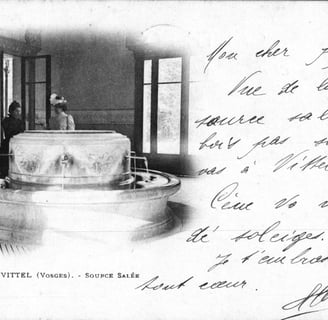 Mon cher
Vue de l
source sal
bois pas s
vas à Vitt
Cène Vo v
dé soleiges.
Je t'embras
tout cœur.
VITTEL (Vosges). - Source Salée